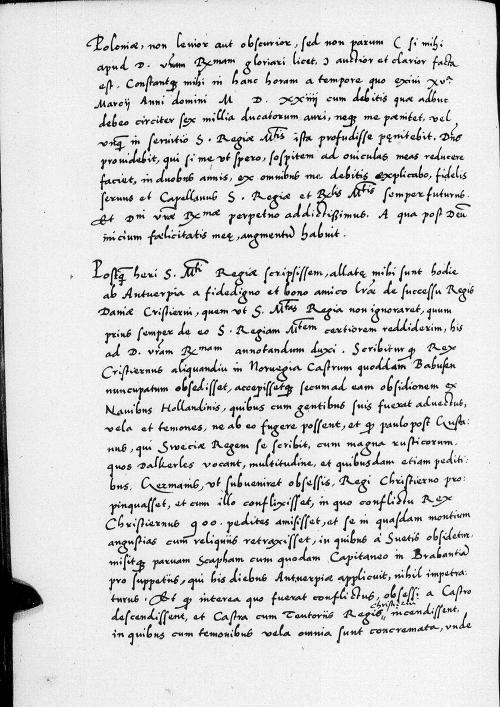 Poloniæ, non levior aut obscurior, sed non parum ( si mihi
apud D. vram R̃mam gloriari licet, ) auctior et clarior facta
est. Constantque mihi in hanc horam a tempore quo exivi xvᵃ
Marcij Anni domini M D. XXIIII cum debitis quæ adhuc
debeo circiter sex millia ducatorum auri, neque me pænitet, vel
unq̃ in servitio S. Regiæ Mᵗⁱˢ ista profudisse pęnitebit. Dñs
providebit, qui si me ut spero, sospitem ad oviculas meas reducere
faciet, in duobus annis, ex omnibus me debitis explicabo, fidelis
servus et Capellanus S. Regiæ et Mᵗⁱˢ semper futurus.
Et Dni vræ R̃mæ perpetuo addictissimus. A qua post Deũ
inicium fælicitatis meę, augmentũ habuit.
Postq̃ heri S. Mᵗⁱ Regiæ scripsissem, allatę mihi sunt hodie
ab Antverpia a fidedigno et bono amico lr̃æ de successu Regis
Daniæ Cristierni, quem ut S. Mᵗᵃˢ Regia non ignoraret, quum
prius semper de eo S. Regiam Mᵗᵉᵐ certiorem reddiderim, his
ad D. vram R̃mam annotandum duxi. Scribitur q̃ Rex
Cristiernus aliquandiu in Norvegia Castrum quoddam Babusen
nuncupatum obsedisset, accepissetque secum ad eam obsidionem ex
Navibus Hollandinis, quibus cum gentibus suis fuerat advectus,
vela et temones, ne ab eo fugere possent, et q̃ paulo post Gusta:
nus, qui Sweciæ Regem se scribit, cum magna rusticorum,
quos Dalkerles vocant, multitudine, et quibusdam etiam pediti:
bus Germanis, ut subveniret obsessis, Regi Christierno pro:
pinquasset, et cum illo conflixisset, in quo conflictu Rex
Christiernus 900. pedites amisisset, et se in quasdam montium
angustias cum reliquiis retraxisset, in quibus a Suetis obsidetur
misitque parvam Scapham cum quodam Capitaneo in Brabantiã
pro suppetiis, qui his diebus Antverpiæ applicuit, nihil impetra:
turus. Et q̃ interea quo fuerat conflictus, obsessi a Castro
descendissent, et Castra cum Tentoriis Regis Christierni incendissent,
in quibus cum temonibus vela omnia sunt concremata, unde